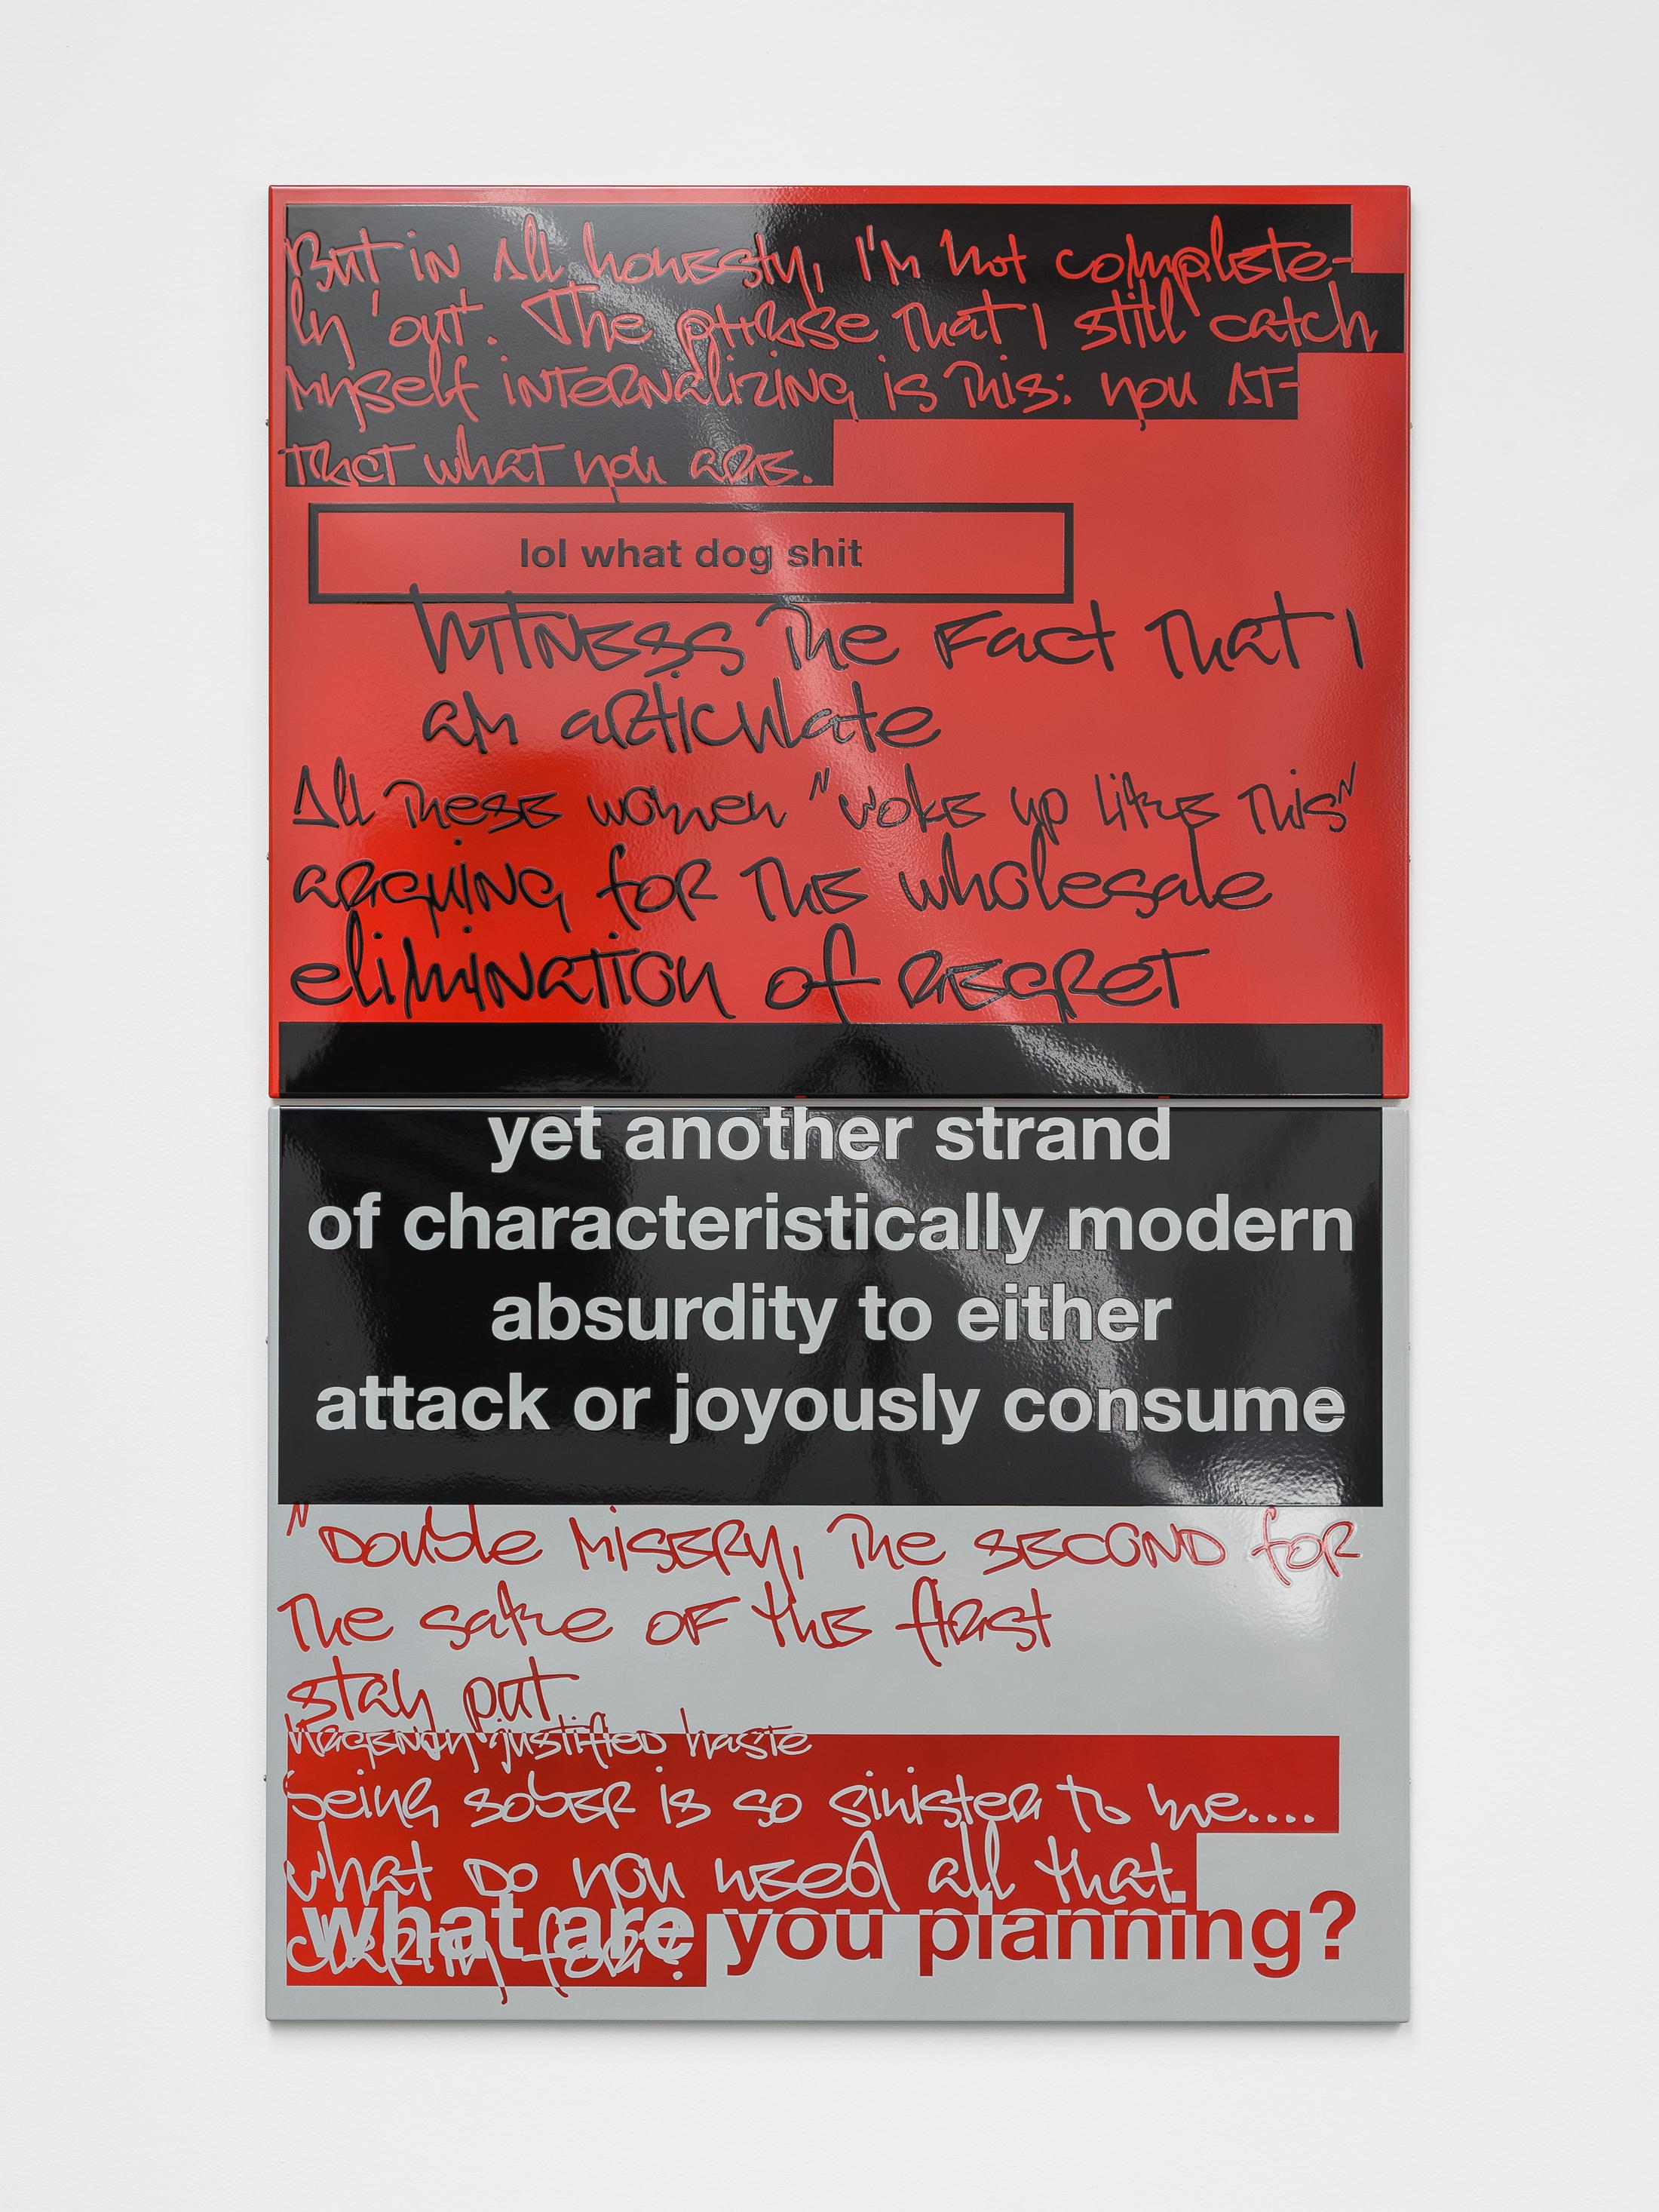 But in All honesty, I'm not complete-
ly 'out'. The phrase that I still catch
myself internalizing is this: you at-
tract what you are.
lol what dog shit
Witness the fact that I
am articulate
All these women "woke up like this"
arguing for the wholesale
elimination of regret
yet another strand
of characteristically modern
absurdity to either
attack or joyously consume
"Double misery, the second for
the sake of the first
stay put
urgently justified haste
being sober is so sinister to me....
what do you need all that
what are you planning?
clarity for?